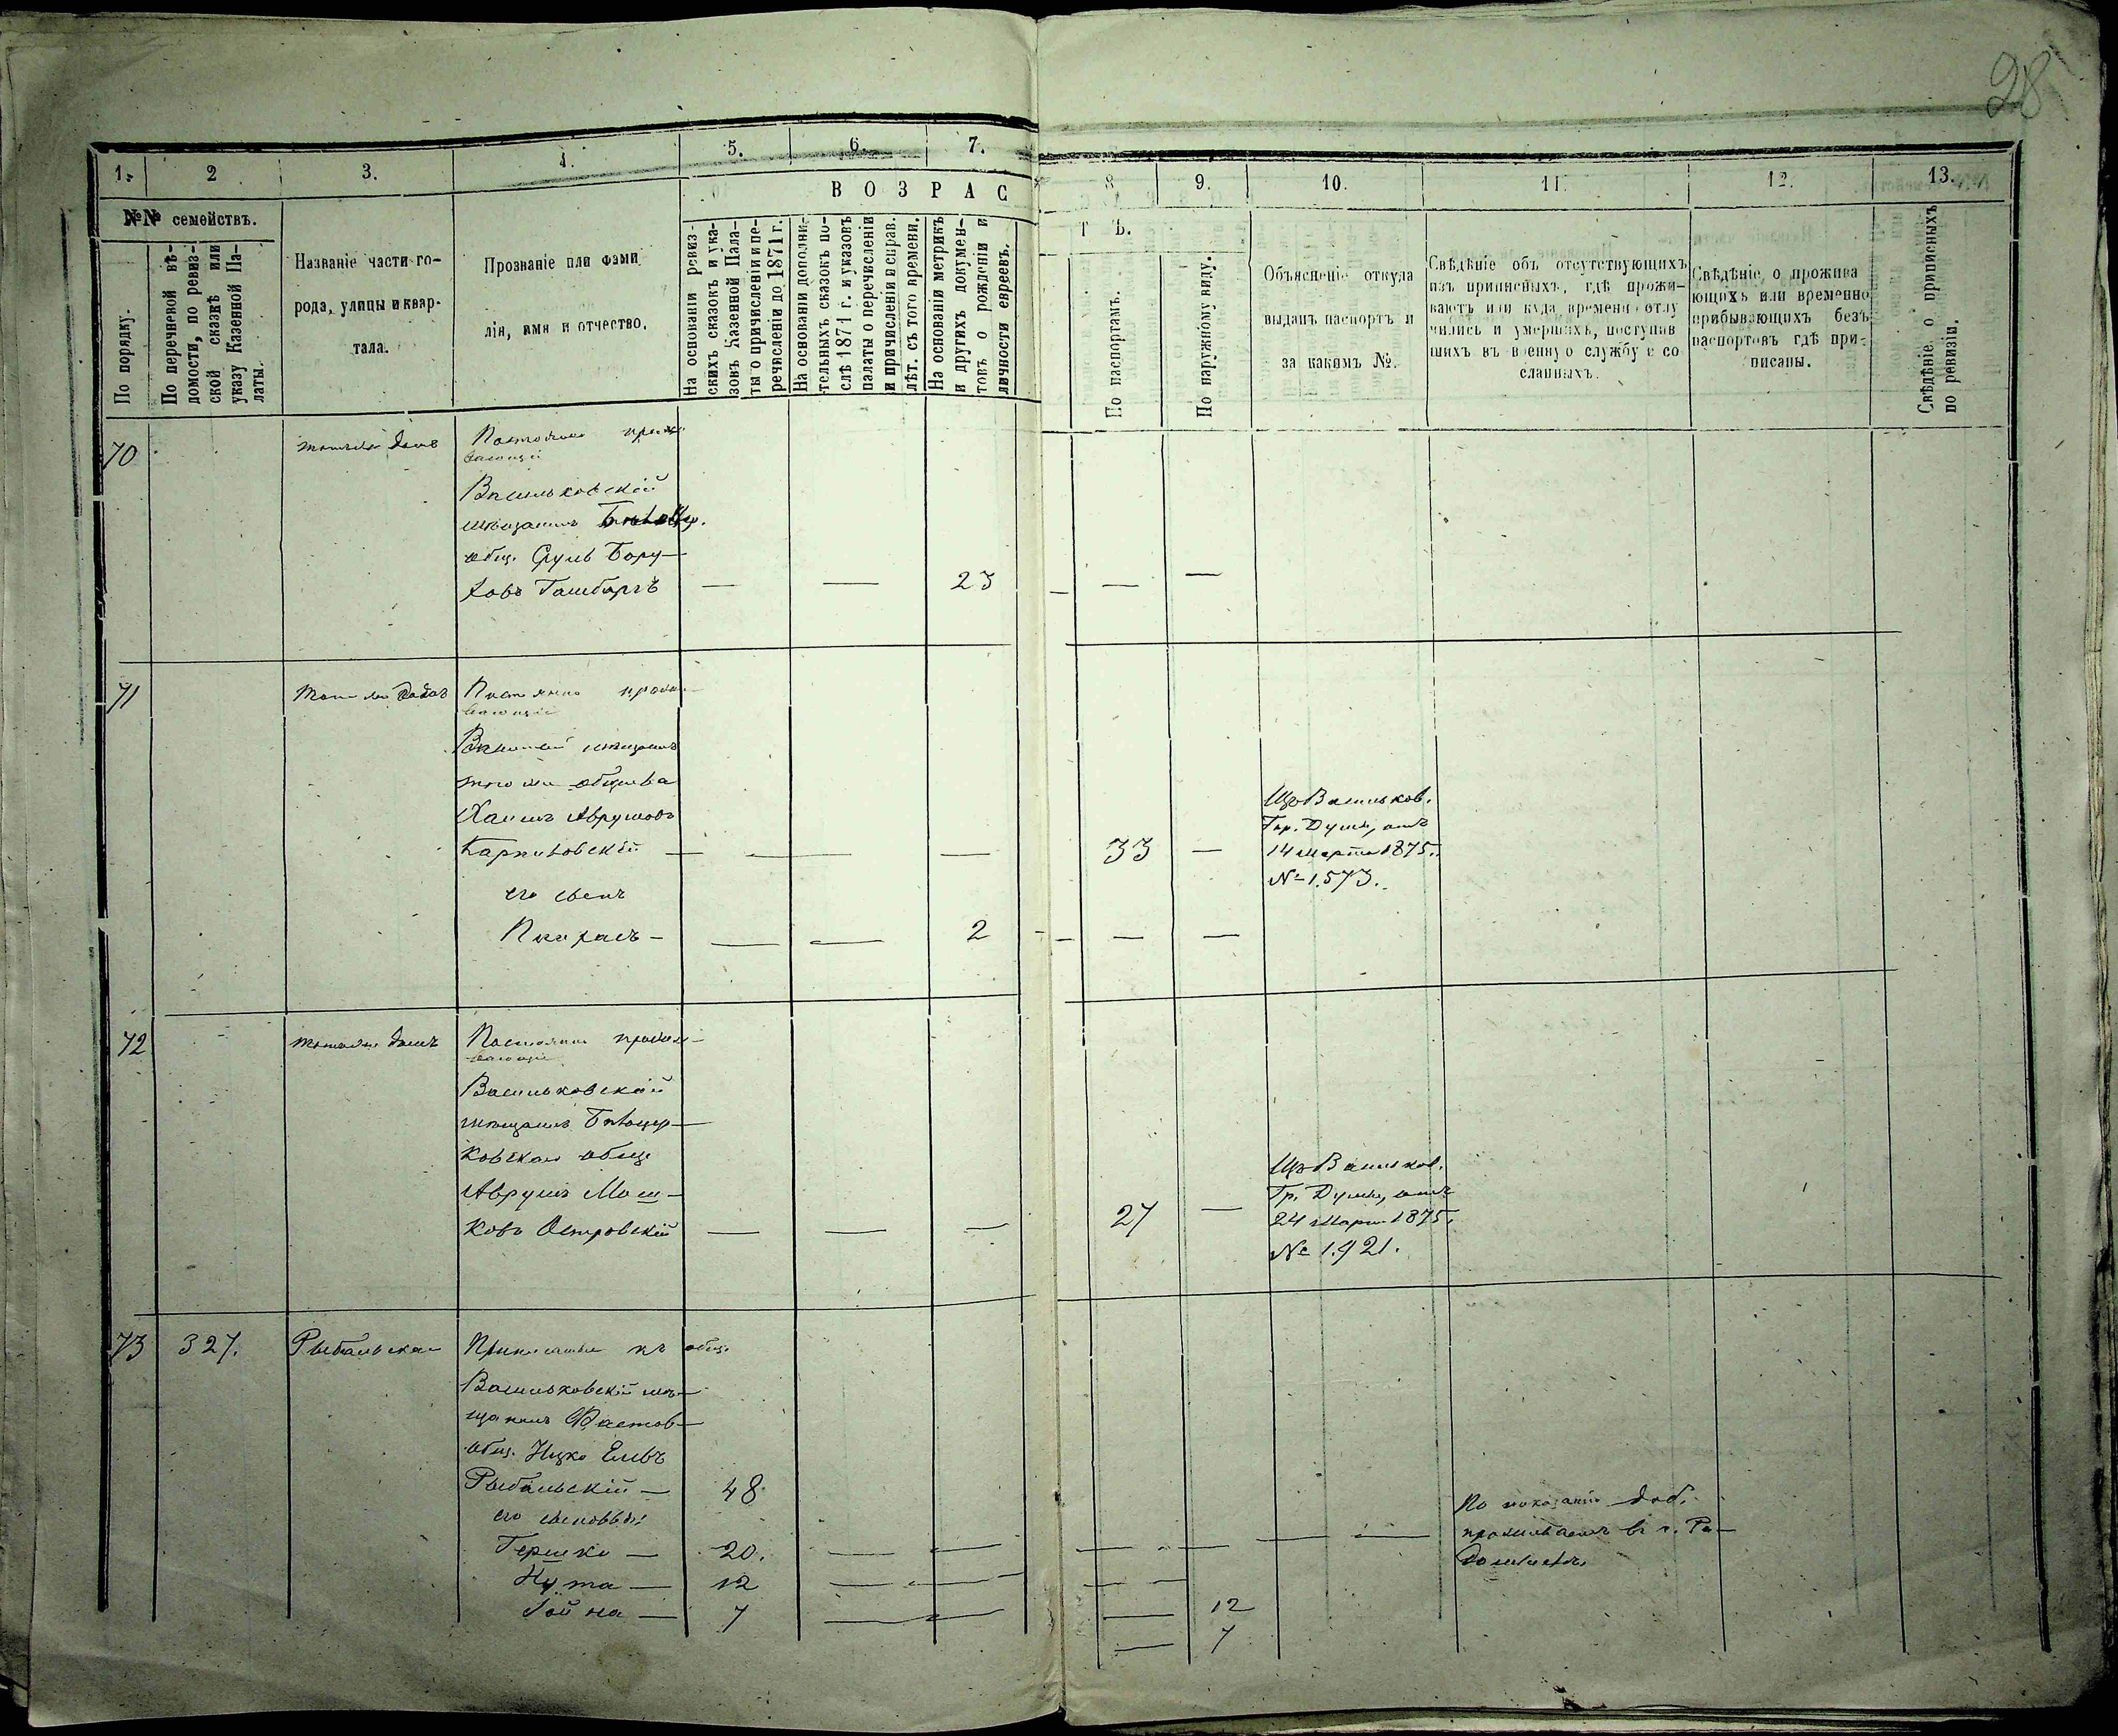 28
1.
2
3.
4.
5.
6.
7.
8
9.
10.
11.
12.
13.
№№ семействъ.
По порядку.
По перечневой вѣ-
домости, по ревиз-
ской сказкѣ или
указу Казенной Па-
латы.
Названіе части го-
рода, улицы и квар-
тала.
Прозваніе или фами
лія, имя и отчество.
ВОЗРАС
Т Ъ.
На основаніи ревиз-
скихъ сказокъ и ука-
зовъ Казенной Пала-
ты о причисленіи и пе-
речисленіи до 1871 г.
На основаніи дополни-
тельныхъ сказокъ по-
слѣ 1871 г. и указовъ
палаты о перечисленіи
и причисленіи и справ.
лѣт. съ того времени.
На основаніи метрикъ
и другихъ докумен-
товъ о рожденіи и
личности евреевъ.
По паспортамъ.
По наружному виду.
Объясненіе откуда
выданъ паспортъ и
за какимъ №.
Свѣдѣніе объ отсутствующихъ
изъ приписныхъ, гдѣ прожи-
ваютъ или куда временно отлу
чились и умершихъ, поступив
шихъ въ военную службу и со
сланныхъ.
Свѣдѣніе о прожива
ющихъ или временно
прибывающихъ безъ
паспортовъ гдѣ при-
писаны.
Свѣдѣніе о приписныхъ
по ревизіи.
70
домъ
Постоянно прожи
вающій
Васильковскій
мѣщанинъ
общ. Сруль Бору-
ховъ
— — 23 — —
71
Постоянно прожи
вающій
мѣщанинъ
того же общества
Хаимъ Аврумовъ
Карпиловскій — — — 33 —
Изъ Васильков.
Гор. Думы, отъ
14 марта 1875.
№ 1.573.
его сынъ
— — — 2 — —
72
домъ
Постоянно прожи-
вающій
Васильковскій
мѣщанинъ Бѣлоцер-
ковскаго общ.
Аврумъ Мош-
ковъ Островскій — — — 27 —
Изъ Васильков.
Гр. Думы, отъ
24 Марта 1875.
№ 1.921.
73
327.
Рыбальская
Приписные къ общ.
Васильковскій мѣ-
щанинъ Фастов-
общ. Ицко
Рыбальскій — 48
его сыновья:
Гершко — 20. — —
Нута — 12 — — — 12
— 7 — — — 7
По показанію
проживаетъ въ г. Ра-